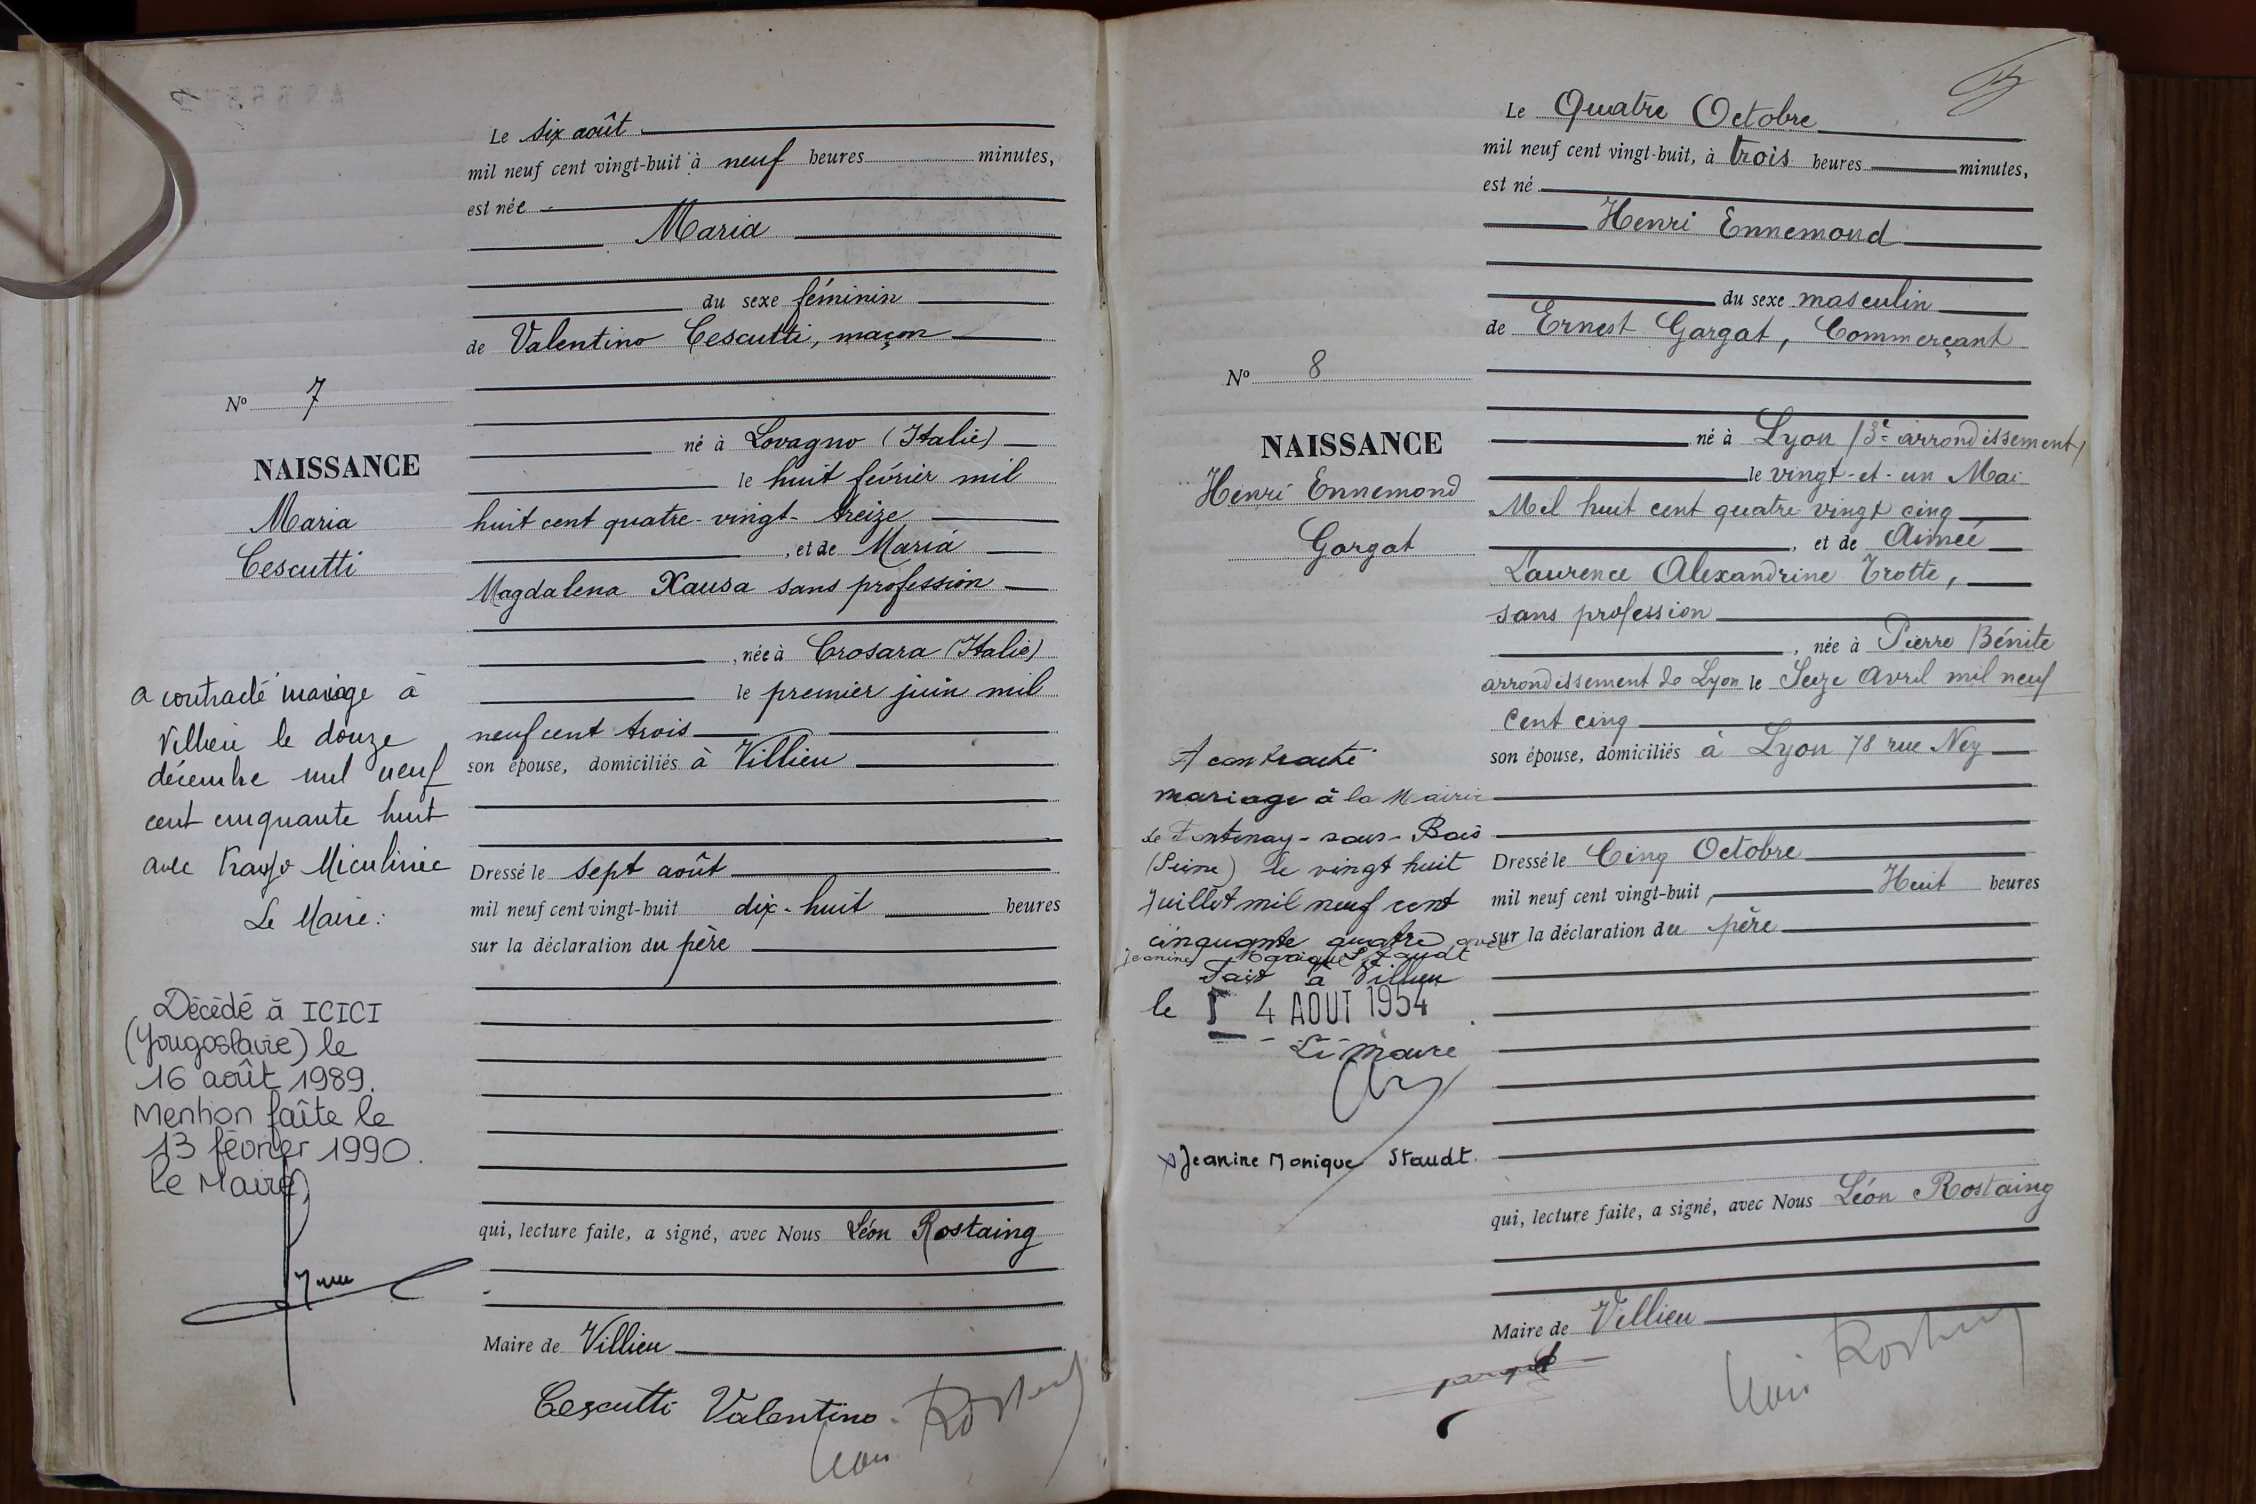 Le six août
mil neuf cent vingt-huit à neuf heures minutes,
est née
Maria
du sexe féminin
de Valentino Cescutti, maçon
N° 7
né à Lovagno (Italie)
NAISSANCE
le huit février mil
Maria
huit cent quatre-vingt-treize
, et de Maria
Cescutti
Magdalena Xausa sans profession
, née à Crosara (Italie)
le premier juin mil
neuf cent trois
son épouse, domiciliés à Villieu
a contracté mariage à
Villieu le douze
décembre mil neuf
cent cinquante huit
avec Miculinic
Le Maire :
Dressé le sept août
mil neuf cent vingt-huit dix-huit heures
sur la déclaration du père
Décédé à ICICI
(Yougoslavie) le
16 août 1989.
Mention faîte le
13 février 1990.
Le Maire,
qui, lecture faite, a signé, avec Nous Léon Rostaing
Maire de Villieu
Cescutti Valentino
Le Quatre Octobre
mil neuf cent vingt-huit, à trois heures minutes,
est né
Henri Ennemond
du sexe masculin
de Ernest Gargat, Commerçant
N° 8
né à Lyon (3e arrondissement)
NAISSANCE
le vingt-et-un Mai
Henri Ennemond
Mil huit cent quatre vingt cinq
Gargat
, et de Aimée
Laurence Alexandrine Trotte,
sans profession
, née à Pierre Bénite
arrondissement de Lyon le Seize Avril mil neuf
cent cinq
son épouse, domiciliés à Lyon 78 rue Ney
A contracté
mariage à la Mairie
de Fontenay-sous-Bois
(Seine) le vingt huit
Juillet mil neuf cent
cinquante quatre avec
Jeanine Monique Staudt
Fait à Villieu
le 4 AOUT 1954
Le Maire
Jeanine Monique Staudt.
Dressé le Cinq Octobre
mil neuf cent vingt-huit, Huit heures
sur la déclaration du père
qui, lecture faite, a signé, avec Nous Léon Rostaing
Maire de Villieu
gargat